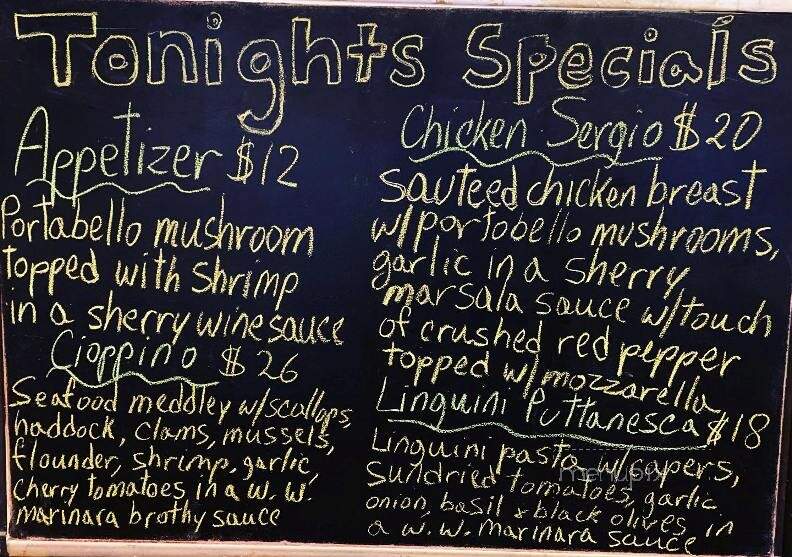 Tonights Specials
Appetizer $12
Portabello mushroom
topped with shrimp
in a sherry wine sauce
Cioppino $26
Seafood meddley w/scallops,
haddock, clams, mussels,
flounder, shrimp, garlic
cherry tomatoes in a w. w.
marinara brothy sauce
Chicken Sergio $20
sauteed chicken breast
w/portobello mushrooms,
garlic in a sherry
marsala sauce w/touch
of crushed red pepper
topped w/ mozzarella
Linguini Puttanesca $18
Linguini pasta w/capers,
sundried tomatoes, garlic
onion, basil & black olives in
a w. w. marinara sauce
menupix